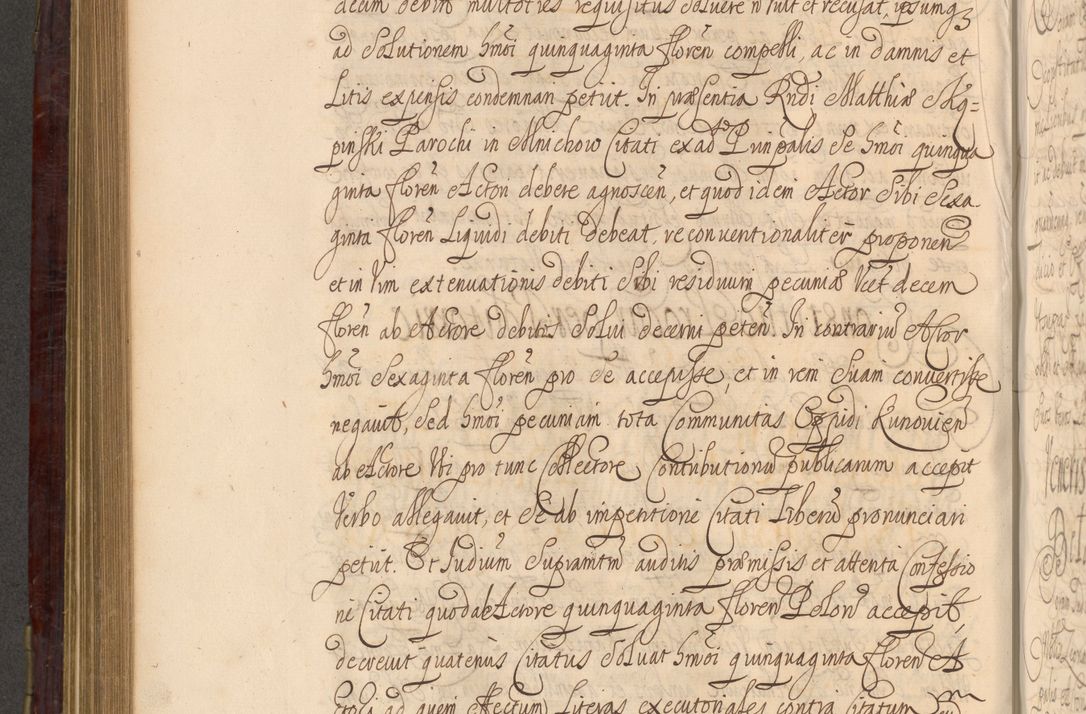 decim debito multoties requisitus solvere n̄ vult et recusat, ipsumq3
ad solutionem hm̄oi quinquaginta floren̄ compelli, ac in damnis et
Litis expensis condemnari petiit. In præsentia Rn̄di Matthiæ
pinski Parochi in Mnichow Citati ex ad Prin̄palis se hm̄oi quinqua
ginta floren̄ Actori debere agnoscen̄, et quod idem Actor sibi sexa
ginta floren̄ Liquidi debiti debeat, reconventionaliter proponen̄
et in vim extenuationis debiti sibi residuum pecuniæ vĉt decem
floren̄ ab Actore debitis solui decerni peten̄. In contrariu Actor
hm̄oi sexaginta floren̄ pro se accepisse, et in rem suam convertisse
negavit, sed hm̄oi pecuniam tota Communitas Oppidi Kunovien̄
ab Actore uti pro tunc Collectore Contributionu publicarum accepit
Verbo allegavit, et se ab impetitione Citati Liberu pronunciari
petiit. Et Judium supram̄tm auditis præmissis et attenta Confessio
ne Citati quod ab Actore quinquaginta floren̄ Polon̄ accepit,
decrevit quatenus Citatus solvat hm̄oi quinquaginta floren̄ A
ctori ad quem effectum Literas executoriales contra Citatum